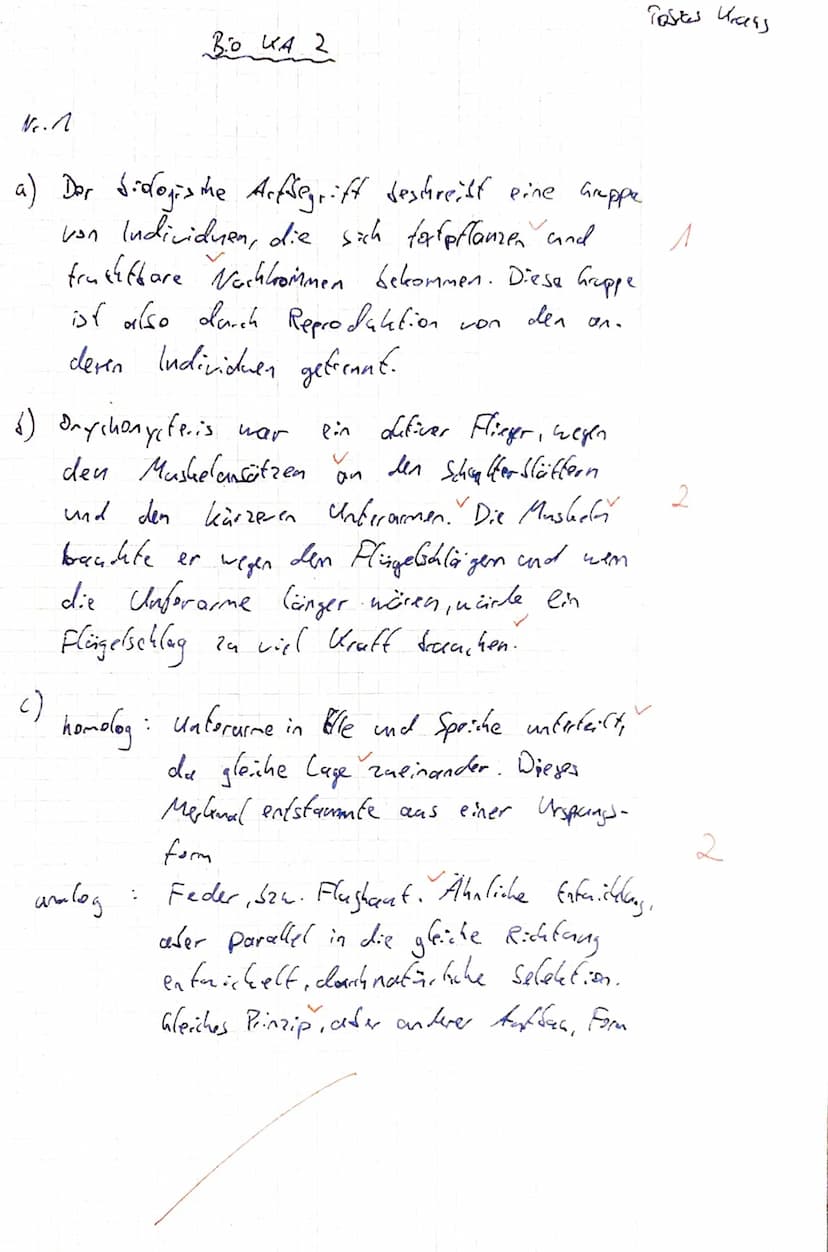 Bio KA 2
Nr. 1
a) Der biologische Artbegriff beschreibt eine Gruppe
von Individuen, die sich fortpflanzen und
1
fruchtbare Nachkommen bekommen. Diese Gruppe
ist also durch Reproduktion von den an-
deren Individuen getrennt.
b) Onychonycteris war ein aktiver Flieger, wegen
den Muskelansätzen an den Schulterblättern
und den kürzeren Unterarmen. Die Muskeln
2
brauchte er wegen den Flügelschlägen und wenn
die Unterarme länger wären, würde ein
Flügelschlag zu viel Kraft brauchen.
c)
homolog: Unterarme in Elle und Speiche unterteilt,
da gleiche Lage zueinander. Dieses
Merkmal entstammte aus einer Ursprungs-
form
2
analog : Feder, bzw. Flughaut. Ähnliche Entwicklung,
aber parallel in die gleiche Richtung
entwickelt, durch natürliche Selektion.
Gleiches Prinzip, aber anderer Aufbau, Form